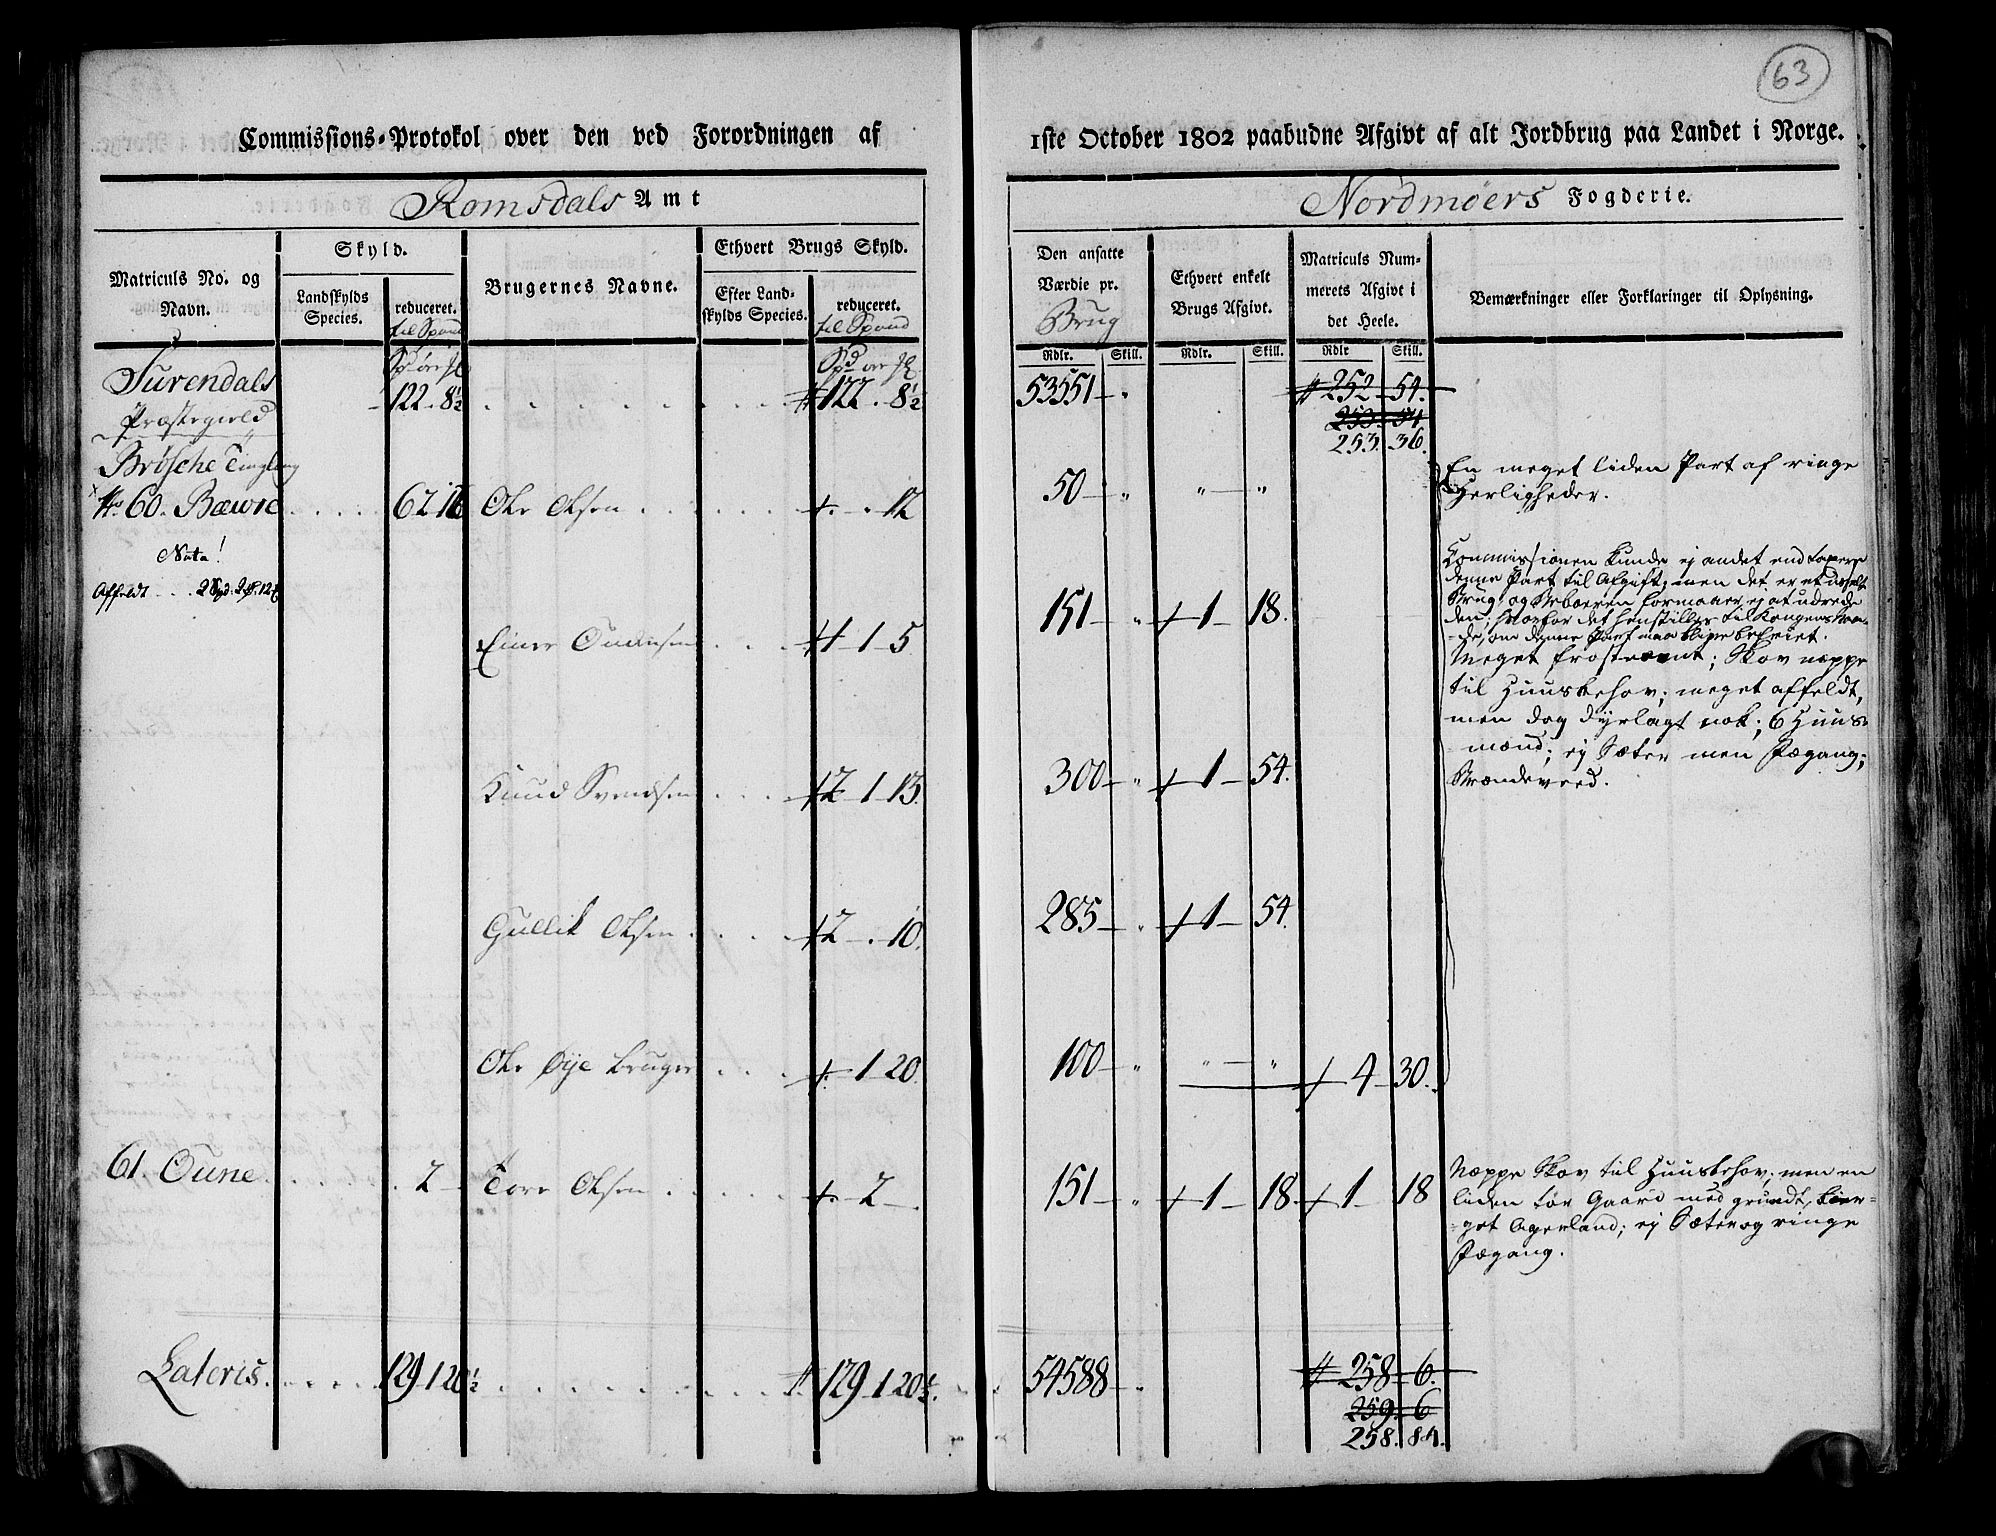 63
Commissions-Protokol over den ved Forordningen af
1ste October 1802 paabudne Afgivt af alt Jordbrug paa Landet i Norge.
Romsdals Amt
Nordmøers Fogderie.
Matriculs No. og Navn.
Skyld.
Landskylds Species.
reduceret.
til Spand
Brugernes Navne.
Ethvert Brugs Skyld.
Efter Landskylds Species.
reduceret.
til Spand
Den ansatte Værdie pr.
Brug
Ethvert enkelt Brugs Afgivt.
Matriculs Nummerets Afgivt i det Heele.
Bemærkninger eller Forklaringer til Oplysning.
Rdlr. Skill. Rdlr. Skill. Rdlr Skill.
Surendals
Præstegield 122 . 8½ 122 . 8½ 53551 - " 252 - 54.
253 - 54
253. 36.
Brøsche Tinglaug
En meget liden Part af ringe
Herligheder.
No 60. Bæwre Ole Olsen 12 50 - " " - "
Nota!
Affeldt
Commissionen kunde ej andet end taxere
denne Part til Afgift; men det er et usselt
Brug og Beboeren formaaer ej at udrede
den; hvorfor det henstilles til Kongens Naa-
de, om denne Part maa blive befriet.
Einer 1 - 5 151 - " 1 - 18.
Meget frostvant; Skov næppe
til Huusbehov; meget affeldt,
men dog dyrlagt nok; 6 Huus-
mænd; ej Sæter men Fægang;
Brændeveed.
Knud Svendsen 2 - 1 - 13. 300 - " 1 - 54.
Gullik Olsen 2 - . 10. 285 - " 1 - 54.
Ole Øye bruger 1 20. 100 - " " - " 4 - 30.
61. Oune 2 Tore Olsen 2 - . 151 - " 1 - 18 1 - 18
Næppe Skov til Huusbehov; men en
liden tør Gaard med grundt,
get Agerland; ej Sæter og ringe
Fægang.
Lateris 129 1 20½ 129 - 1 20½. 54588 - " 258 - 6.
259 - 6
258. 84.